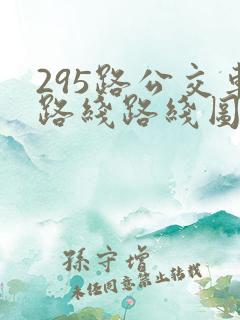 295路公交車
路綫路綫圖
孫守增
未经同意禁止转载